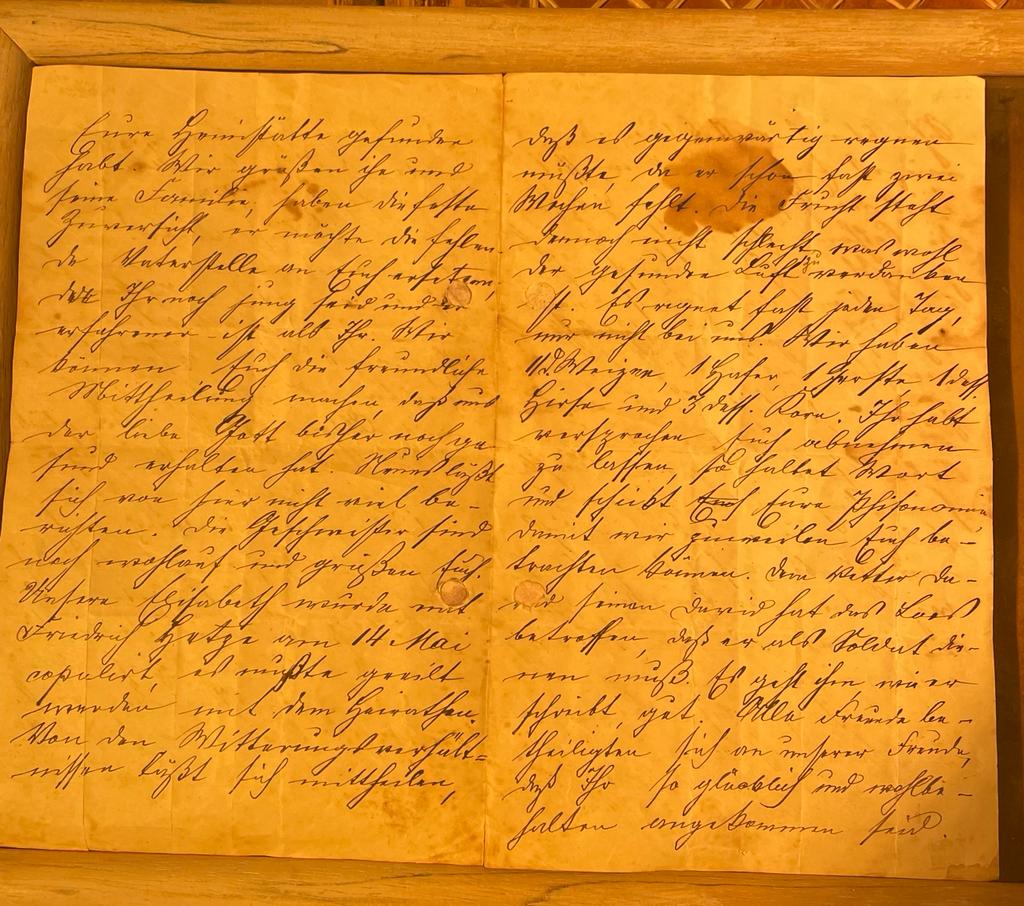 Eure Heimstätte gefunden
habt. Wir grüßen ihn und
seine Familie, haben die feste
Zuversicht, er möchte die fehlen-
de Vaterstelle an Euch ersetzen,
da Ihr noch jung seid und er
erfahrener ist als Ihr. Wir
können Euch die freundliche
Mittheilung machen, daß uns
der liebe Gott bisher noch ge
sund erhalten hat. Neues läßt
sich von hier nicht viel be-
richten. Die Geschwister sind
noch wohlauf und grüßen Euch.
Unsere Elisabeth wurde mit
Friedrich Hetze am 14 Mai
copulirt, es mußte geeilt
werden mit dem Heirathen.
Von den Witterungsverhält-
nissen läßt sich mittheilen,
daß es gegenwärtig regnen
müßte, da er schon fast zwei
Wochen fehlt. Die Frucht steht
dennoch nicht schlecht, was wohl
der gesunden Luft zu verdanken
ist. Es regnet fast jeden Tag,
nur nicht bei uns. Wir haben
11 d. Weizen, 1 Hafer, 1 Gerste 1 dess.
Hirse und 3 dess. Korn. Ihr habt
versprochen Euch abnehmen
zu lassen, so haltet Wort
und schickt Eure Phisionomie
damit wir zuweilen Euch be-
trachten können. Dem Vetter Da-
vid seinen David hat das Loos
betroffen, daß er als Soldat die-
nen muß. Es geht ihm, wie er
schreibt, gut. Alle Freunde be-
theiligten sich an unserer Freude,
daß Ihr so glücklich und wohlbe-
halten angekommen seid.